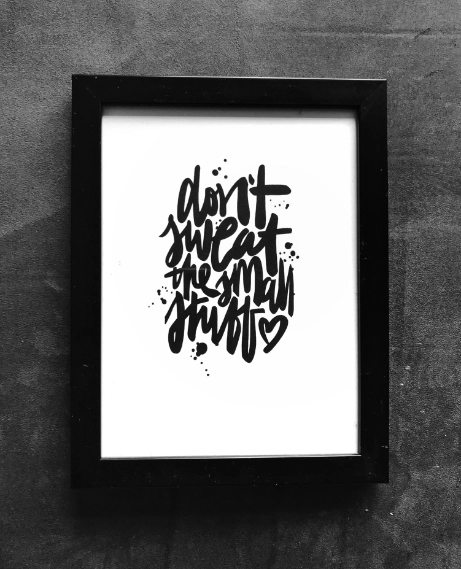 don't
sweat
the small
stuff